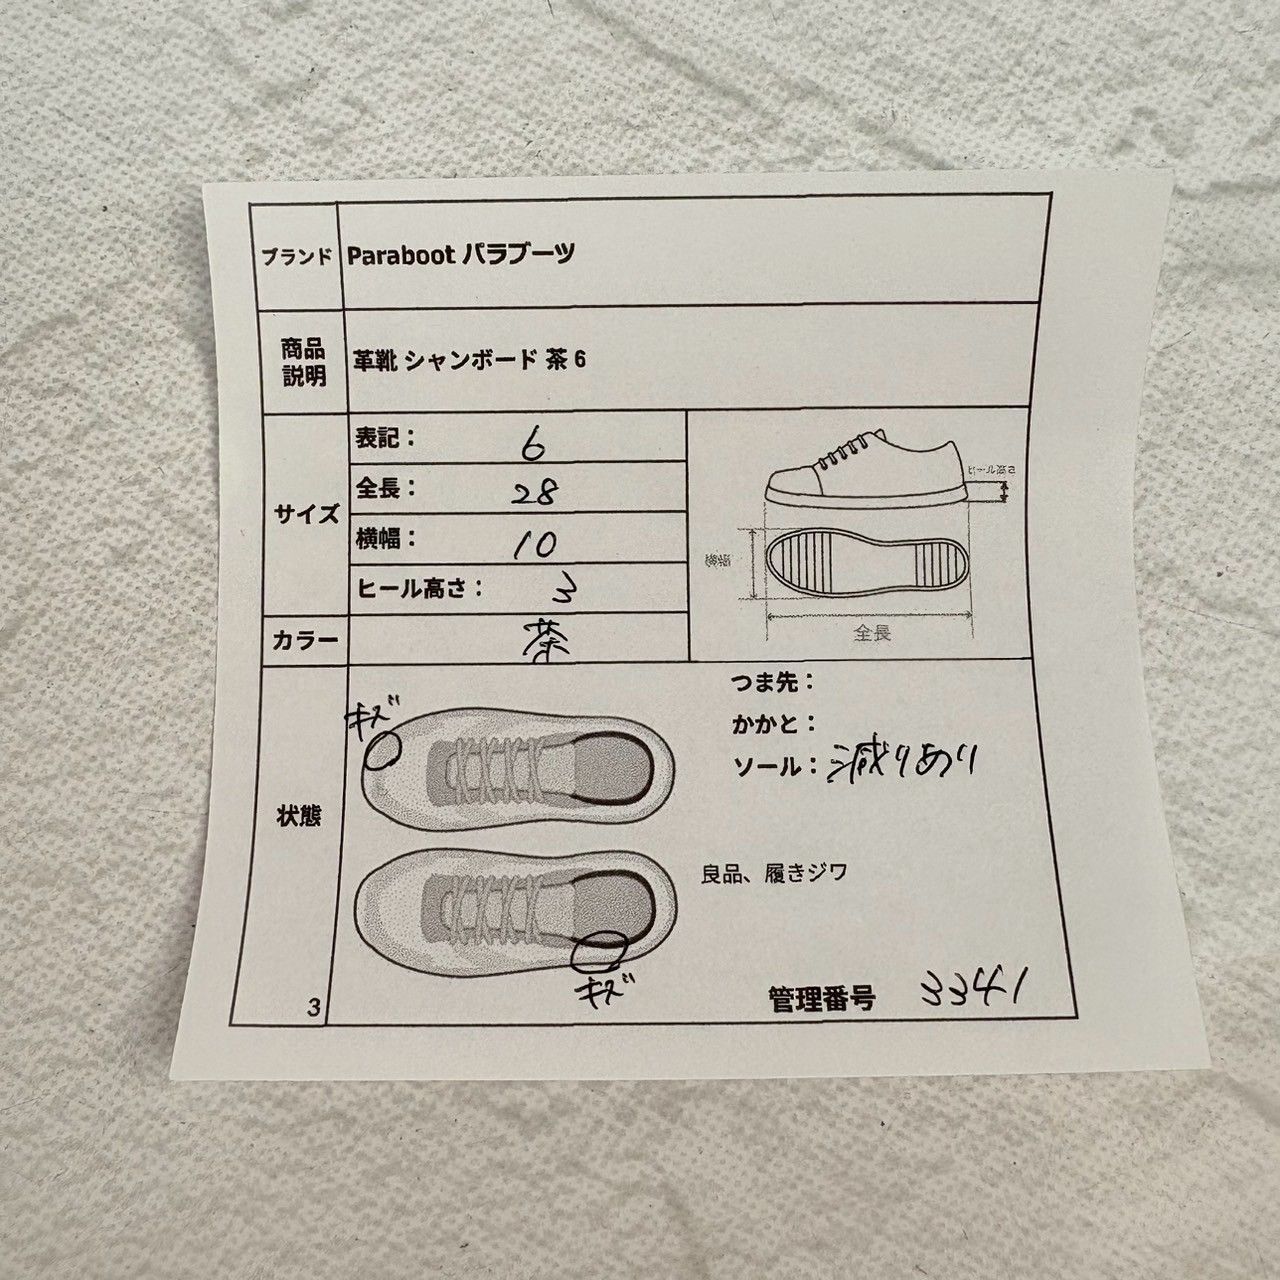 ブランド Paraboot パラブーツ
商品説明 革靴 シャンボード 茶 6
サイズ
表記： 6
全長： 28
横幅： 10
ヒール高さ： 3
カラー 茶
全長
状態
キズ
キズ
つま先：
かかと：
ソール： 減りあり
良品、履きジワ
3
管理番号 3341